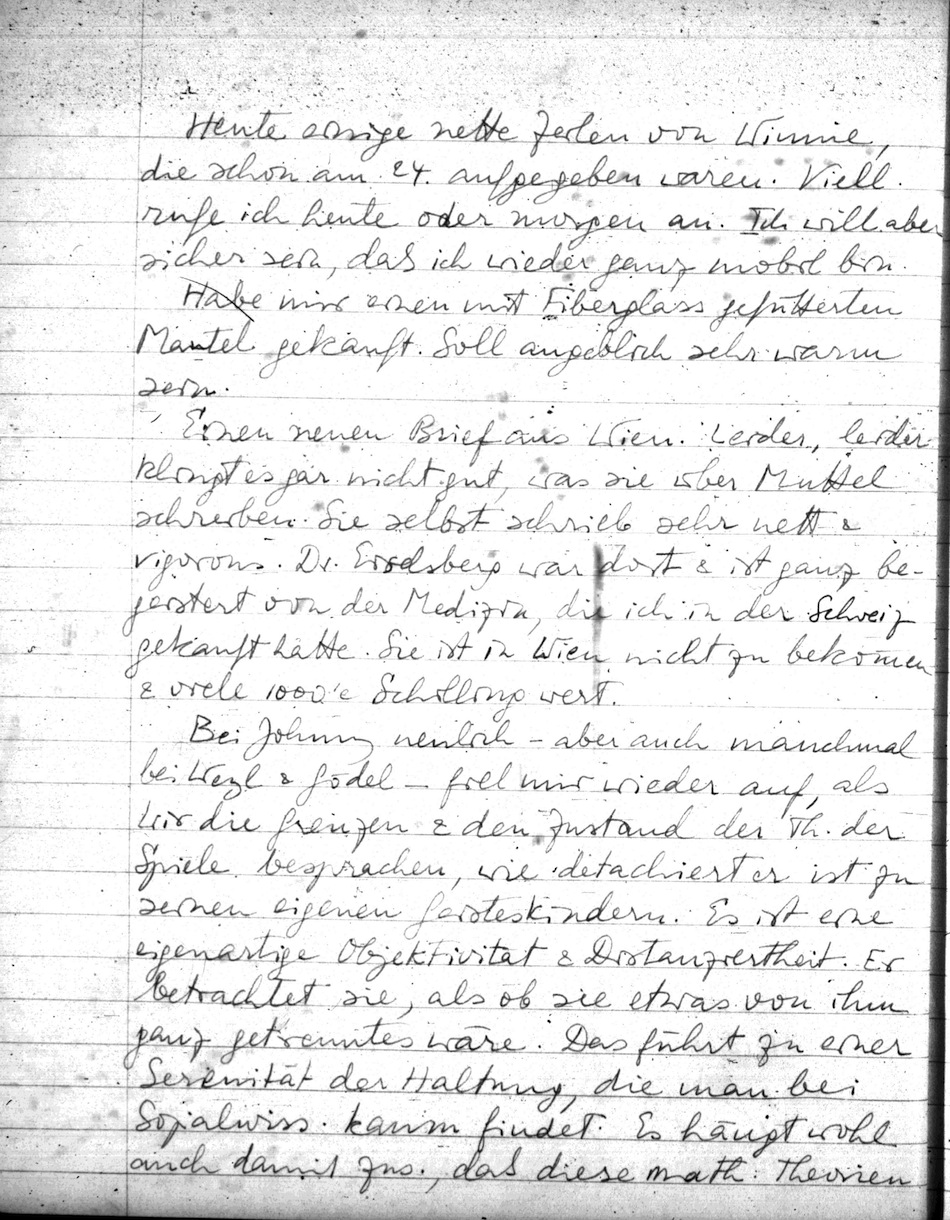 Heute einige nette Zeilen von Winnie,
die schon am 24. aufgegeben waren. Viell.
rufe ich heute oder morgen an. Ich will aber
sicher sein, daß ich wieder ganz mobil bin.
Habe mir einen mit Fiberglass gefütterten
Mantel gekauft. Soll angeblich sehr warm
sein.
Einen neuen Brief aus Wien. Leider, leider
klingt es gar nicht gut, was sie über Muttel
schreiben. Sie selbst schrieb sehr nett &
vigorous. Dr. Eiselsberg war dort & ist ganz be-
geistert von der Medizin, die ich in der Schweiz
gekauft hatte. Sie ist in Wien nicht zu bekomen
& viele 1000'e Schilling wert.
Bei Johnny neulich – aber auch manchmal
bei Weyl & Gödel – fiel mir wieder auf, als
wir die Grenzen & den Zustand der Th. der
Spiele besprachen, wie detachiert er ist zu
seinen eigenen Geisteskindern. Es ist eine
eigenartige Objektivität & Distanziertheit. Er
betrachtet sie, als ob sie etwas von ihm
ganz getrenntes wäre. Das führt zu einer
Serenität der Haltung, die man bei
Sozialwiss. kaum findet. Es hängt wohl
auch damit zus., daß diese math. Theorien